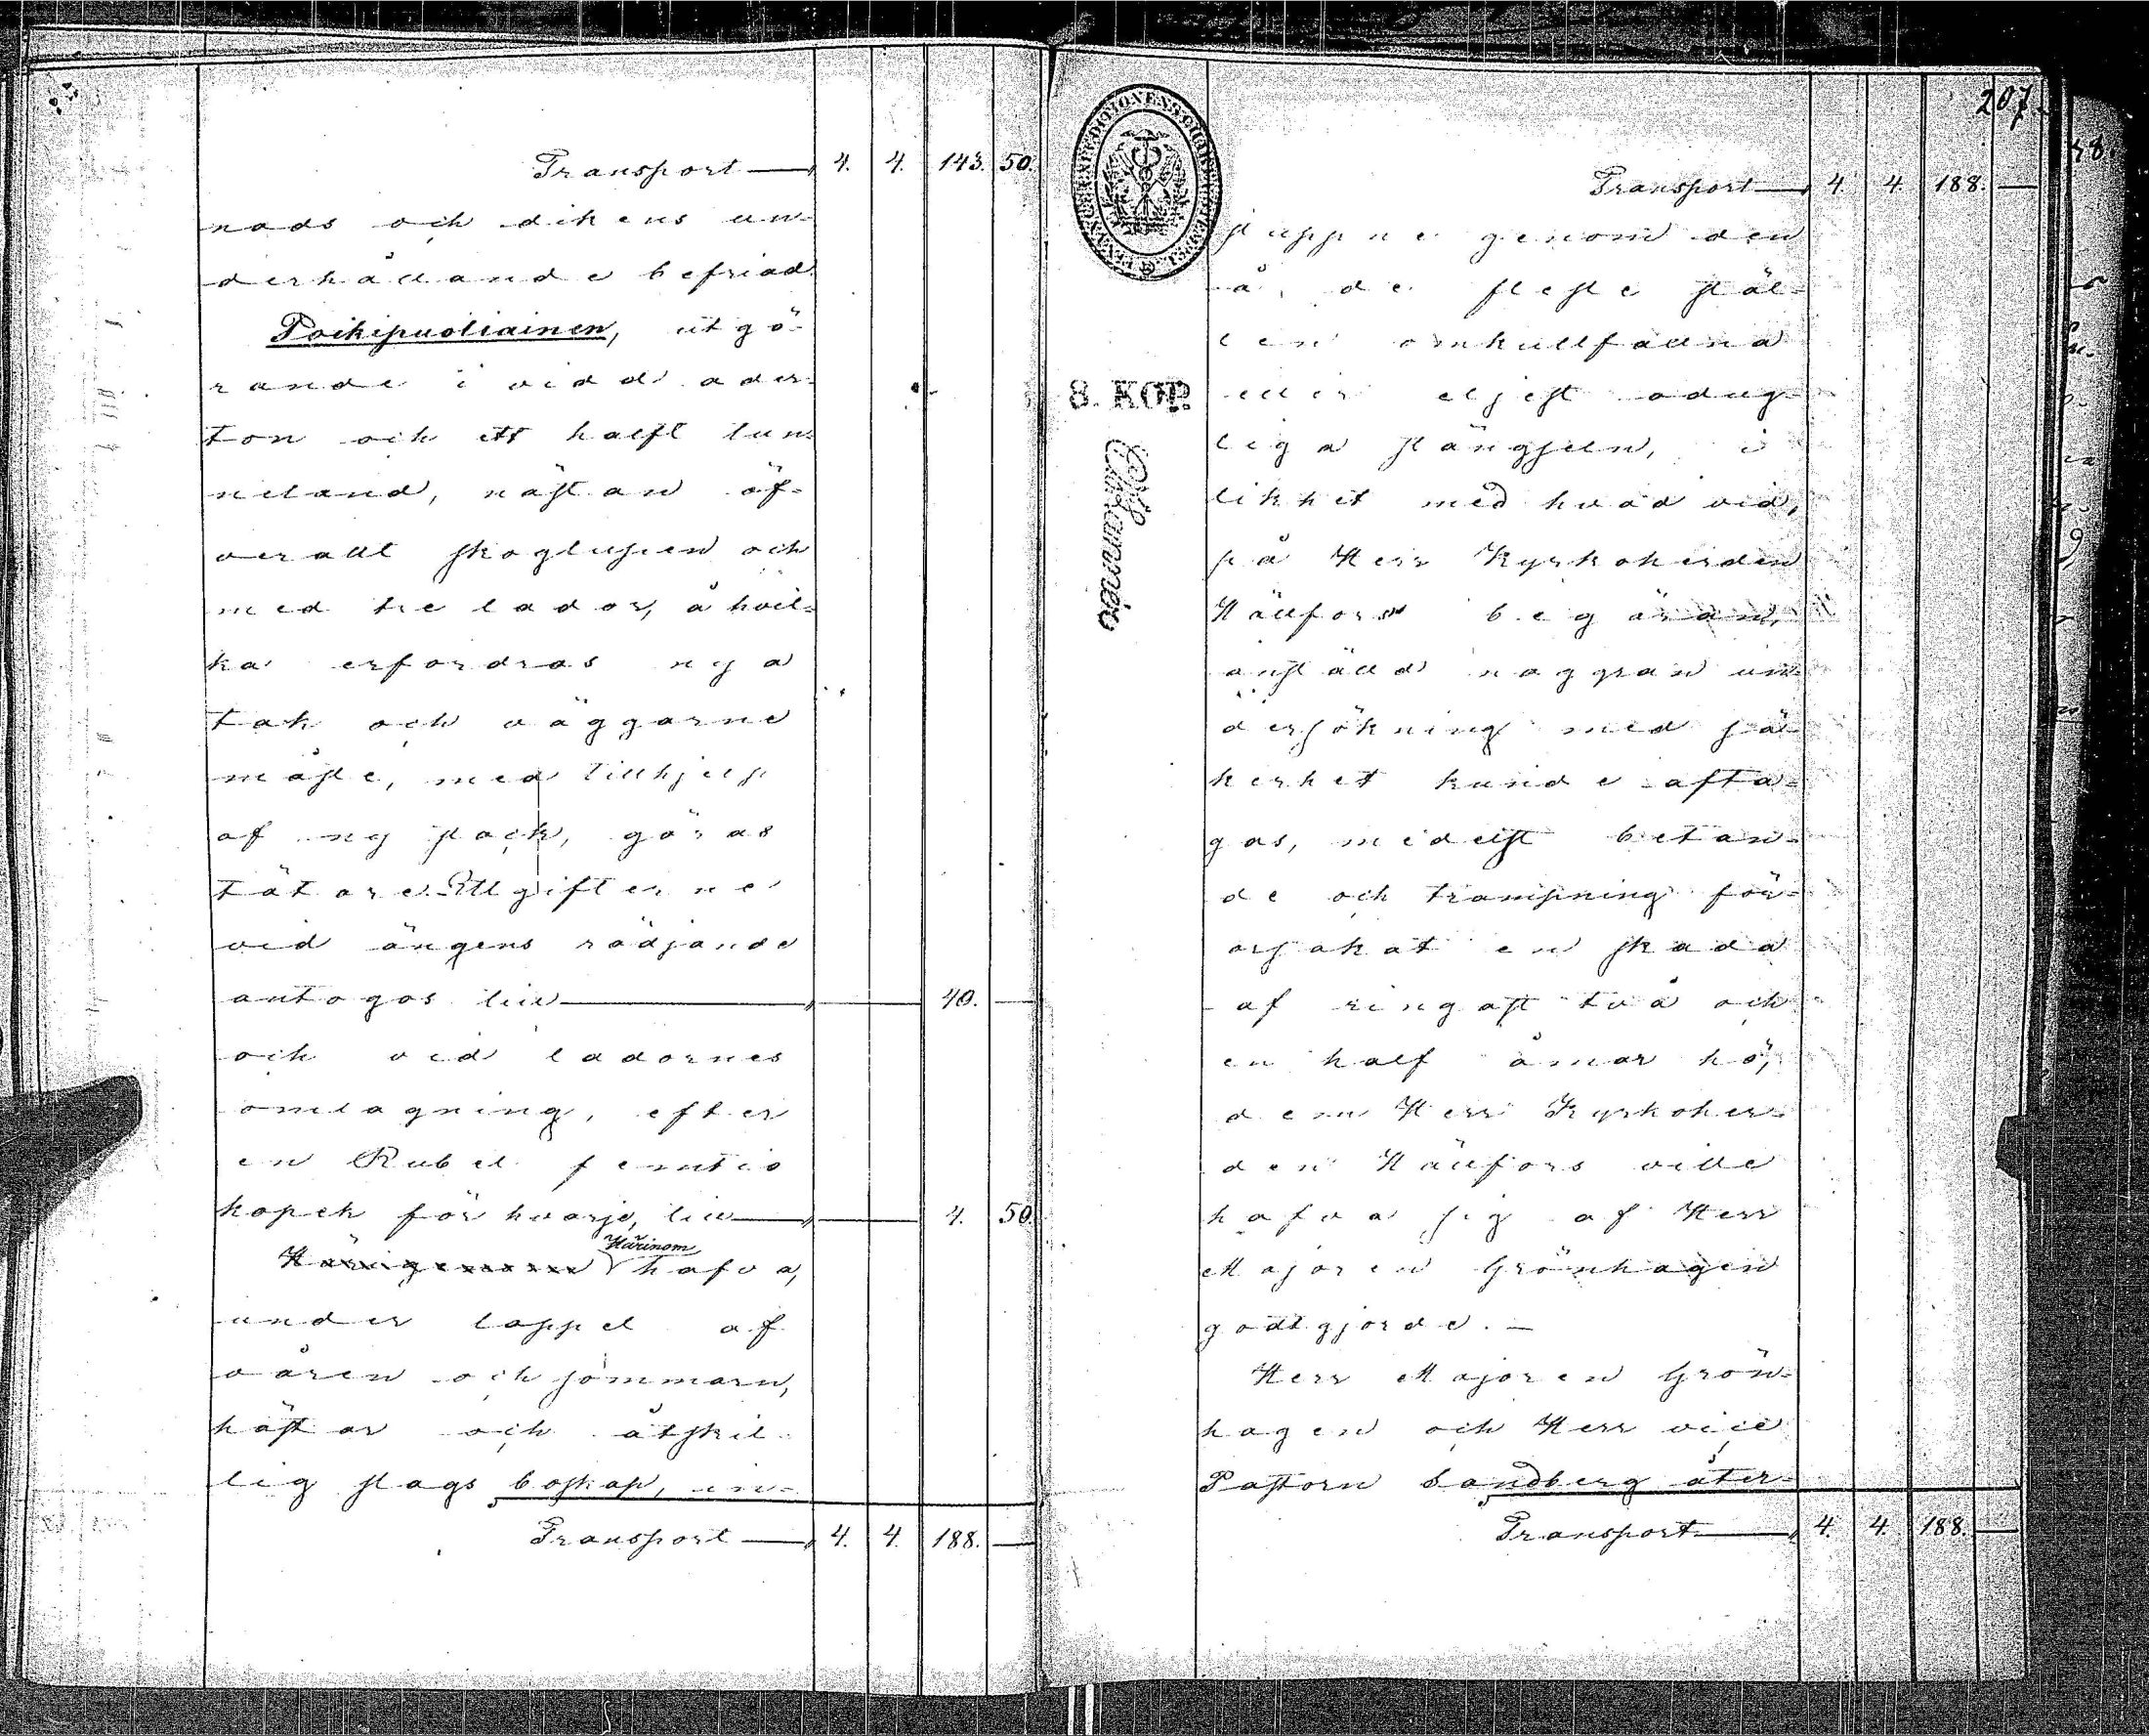 Transport — 4. 4. 143. 50.
nads och dikens un-
derhållande befriad
Poikipuoliainen, utgö-
rande i vidd ader-
ton och ett halft tun-
neland, nästan öf-
verallt skoglupen och
med tre lador, å hvil-
ka erfordras nya
tak och väggarne
måste, med tillhjelp
af ny stock, göras
tätare. Utgifterne
vid ängens rödjande
antogos till — 40. —
och vid ladornes
omlagning, efter
en Rubel femtio
kopek för hvarje, till — 4. 50.
Härinom
hafva,
under loppet af
våren och sommarn,
hästar och åtskil-
lig slags boskap, in-
Transport — 4. 4. 188. —
207.
Transport — 4. 4. 188. —
sluppne genom den
å, de fleste stäl-
len omkullfallna
eller eljest odug-
liga stängseln, i
likhet med hvad vid,
på Herr Kyrkoherden
Hällfors begäran,
anställd noggran un-
dersökning med sä-
kerhet kunde afta-
gas, medelst betan-
de och trampning för-
orsakat en skada
af ringast två och
en half åmar hö,
dem Herr Kyrkoher-
den Hällfors ville
hafva sig af Herr
Majoren Grönhagen
godtgjorde. —
Herr Majoren Grön-
hagen och Herr vice
Pastorn Sandberg åter-
Transport — 4. 4. 188. —
8. KOP.